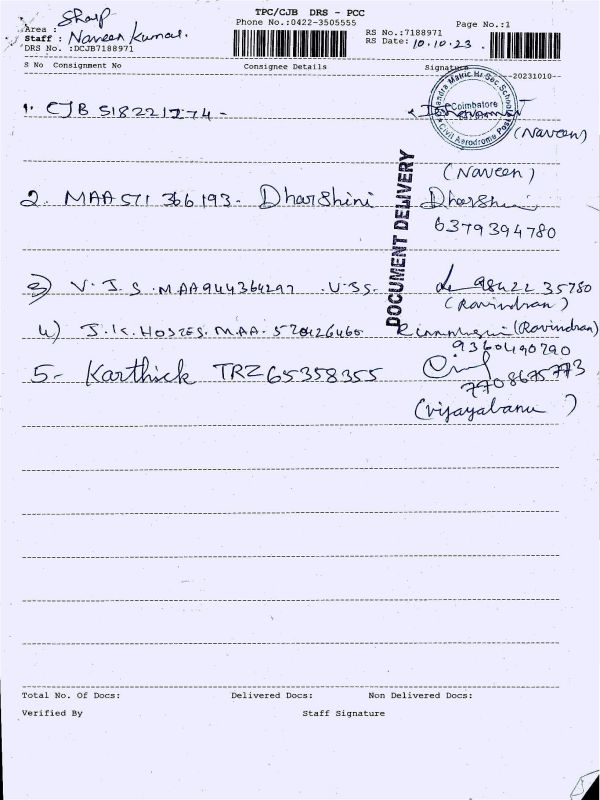 TPC/CJB DRS - PCC
Sharp
Area :
Phone No.:0422-3505555
Page No.:1
Staff : Naveen Kumar.
RS No.:7188971
DRS No. :DCJB7188971
RS Date: 10.10.23.
S No Consignment No Consignee Details Signature
20231010
1. CJB 518221274 -
Matric Hr Sec School
Coimbatore
Civil Aerodrome Post
(Naveen)
(Naveen)
DOCUMENT DELIVERY
2. MAA 571 366 193. Dharshini Dharshini
6379394780
3) V.J.S. MAA944364297 98422 35780
(Ravindran)
4) MAA. (Ravindran)
9360490290
5- Karthick TRZ 65358355
7708675773
(Vijayabanu)
Total No. Of Docs: Delivered Docs: Non Delivered Docs:
Verified By Staff Signature